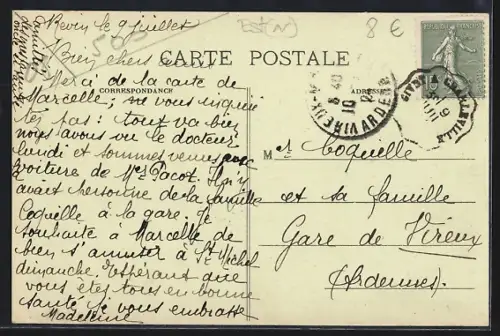 Revin le 9 juillet
Est (N)
8 €
Bien chers amis
CARTE POSTALE
Merci de la carte de
Marcelle ; ne vous inquié
CORRESPONDANCE
ADRESSE
tez pas : tout va bien
nous avons vu le docteur
lundi et sommes venus avec
voiture de Mrs Pacot. Il n'y
avait personne de la famille
Coquelle à la gare. Je
souhaite à Marcelle de
bien s'amuser à St Michel
dimanche. Espérant que
vous êtes tous en bonne
santé je vous embrasse
Madeleine
Mr Coquelle
et sa famille
Gare de Vireux
(Ardennes)
GIVET A CHARLEVILLE